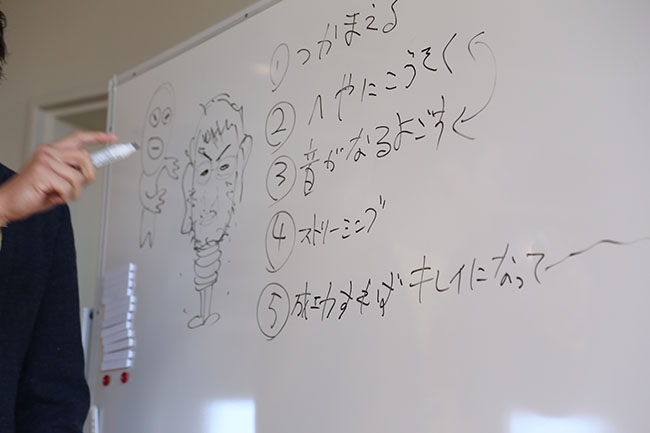 ① つかまえる
② へやにこうそく
③ 音がなるよごす
④ ストリーミング
⑤ 成功すれば キレイになって